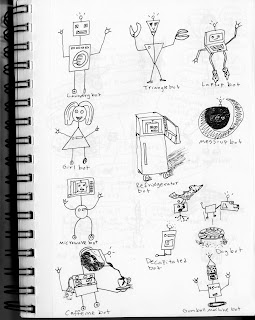 Laundry bot
Triangle bot
Laptop bot
Girl bot
Refridgerator
bot
mess-up bot
microwave bot
Decapitated
bot
Dog bot
Caffeine bot
Gumball machine bot